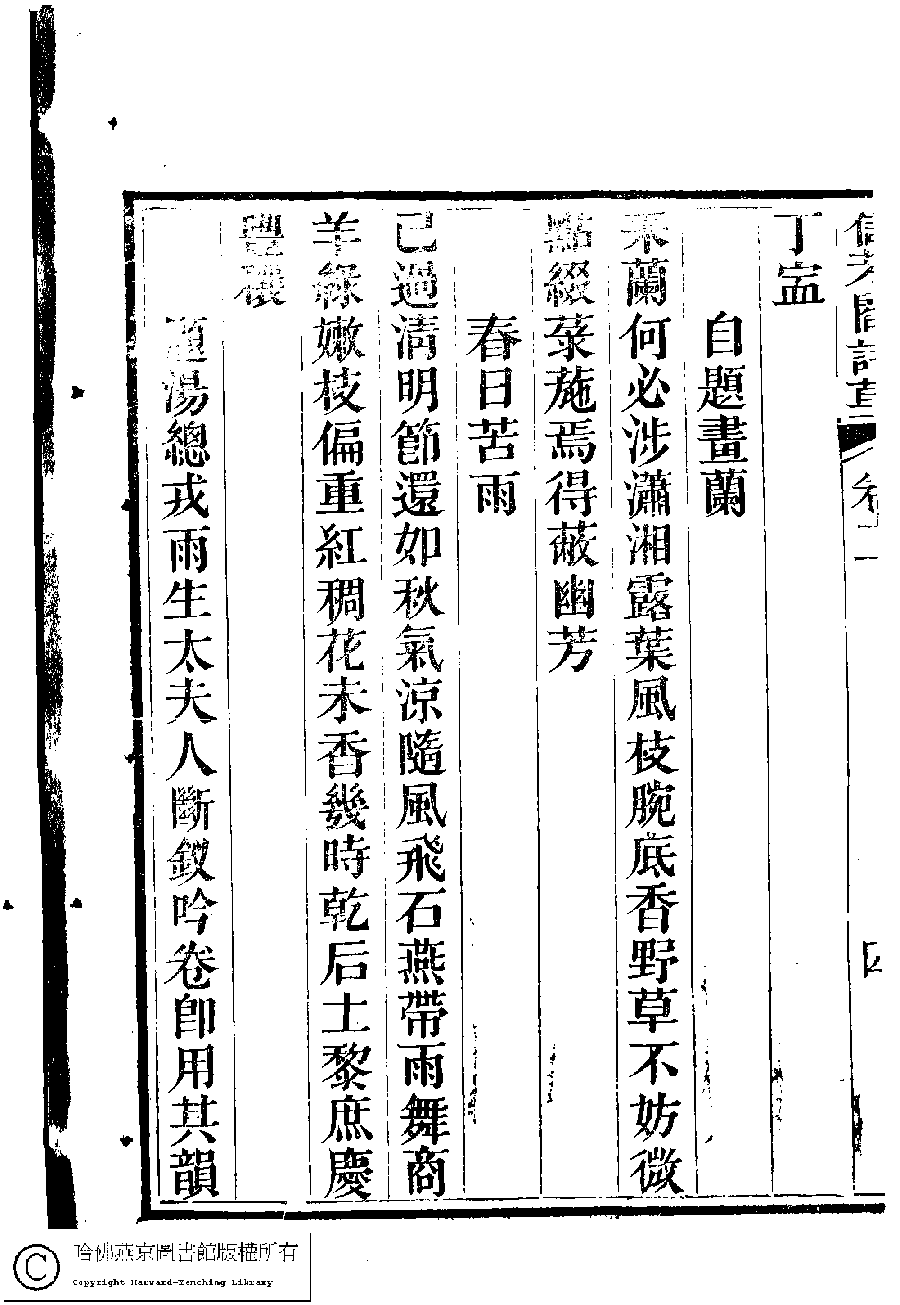 閣詩草 卷二 四
丁寍
自題畫蘭
采蘭何必涉瀟湘露葉風枝腕底香野草不妨微
點綴菉葹焉得蔽幽芳
春日苦雨
已過清明節還如秋氣涼隨風飛石燕帶雨舞商
羊綠嫩枝偏重紅稠花未香幾時乾后土黎庶慶
豐穰
題湯總戎雨生太夫人斷釵吟卷卽用其韻
哈佛燕京圖書館版權所有
Copyright Harvard-Yenching Library